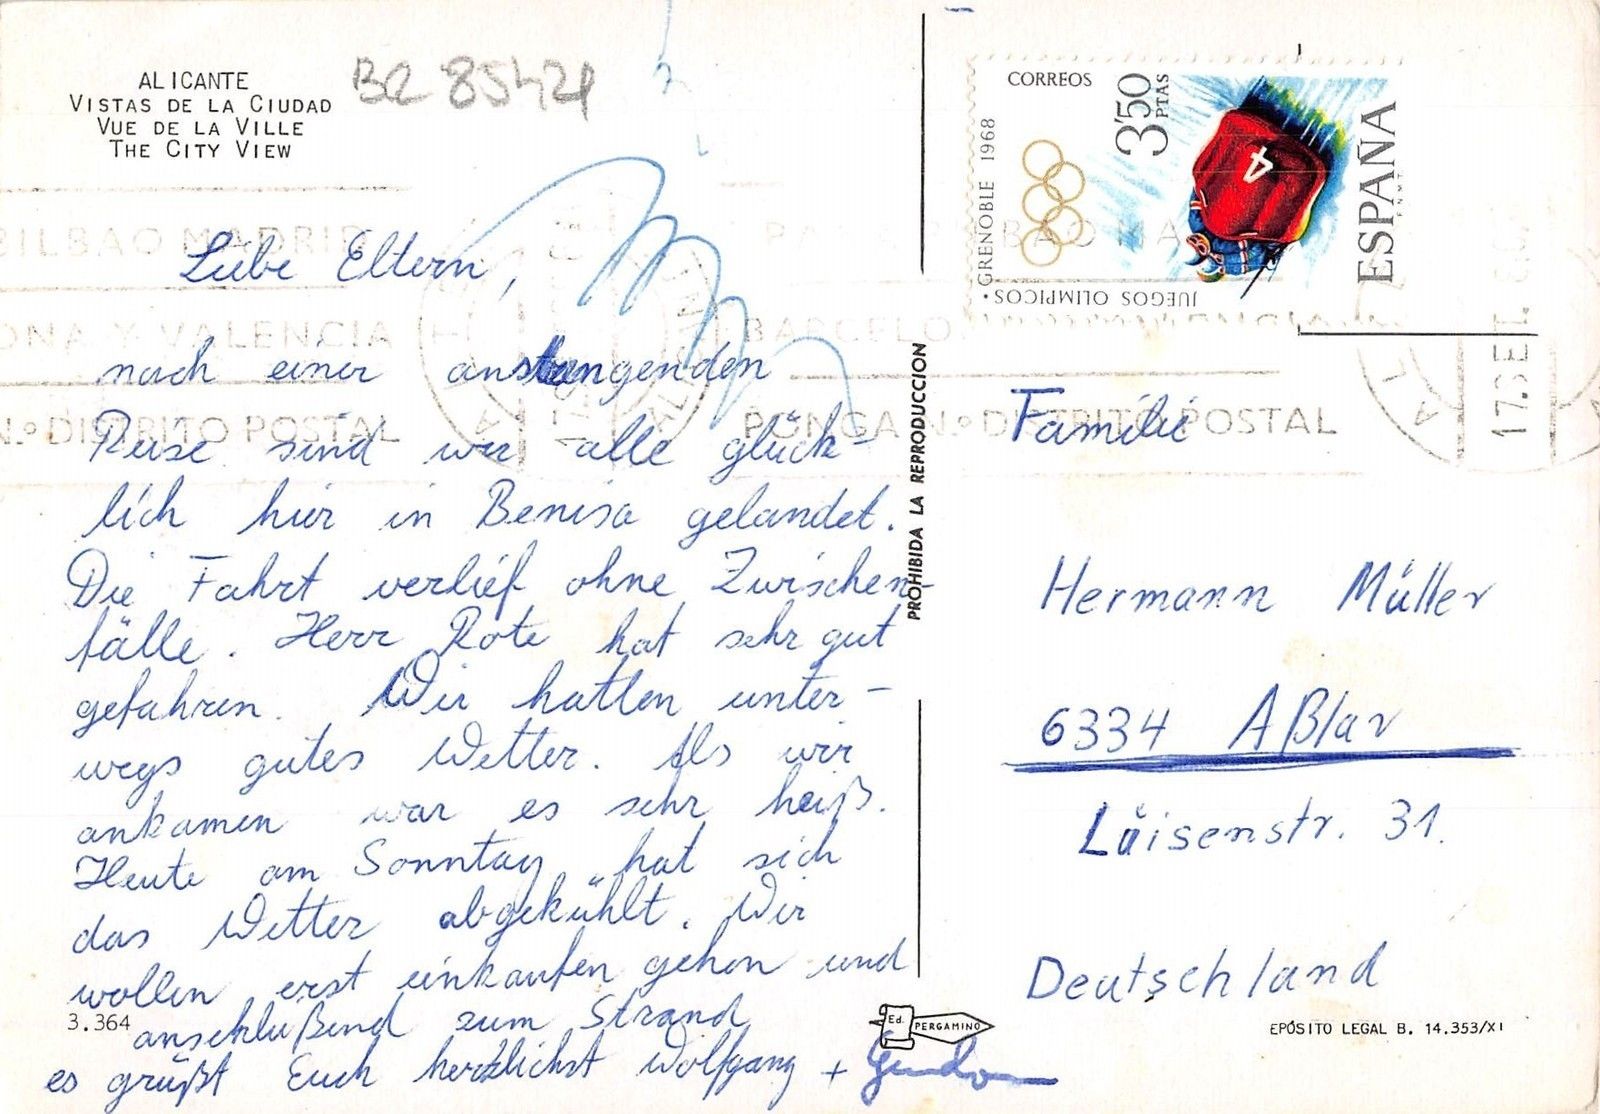 ALICANTE
VISTAS DE LA CIUDAD
VUE DE LA VILLE
THE CITY VIEW
B2 85421
Liebe Eltern,
nach einer anstrengenden
Reise sind wir alle glück-
lich hier in Benisa gelandet.
Die Fahrt verlief ohne Zwischen-
fälle. Herr Rote hat sehr gut
gefahren. Wir hatten unter-
wegs gutes Wetter. Als wir
ankamen war es sehr heiß.
Heute am Sonntag hat sich
das Wetter abgekühlt. Wir
wollen erst einkaufen gehen und
anschlußend zum Strand
es grüßt Euch herzlichst Wolfgang +
3.364
PROHIBIDA LA REPRODUCCION
Ed. PERGAMINO
CORREOS
3'50 PTAS
ESPAÑA
F.N.M.T.
GRENOBLE 1968
JUEGOS OLIMPICOS
4
BILBAO MADRID
ONA Y VALENCIA
N.º DISTRITO POSTAL
BARCELO
PONGA N.º DISTRITO POSTAL
17. SET.
Familie
Hermann Müller
6334 Aßlar
Luisenstr. 31.
Deutschland
EPÓSITO LEGAL B. 14.353/XI